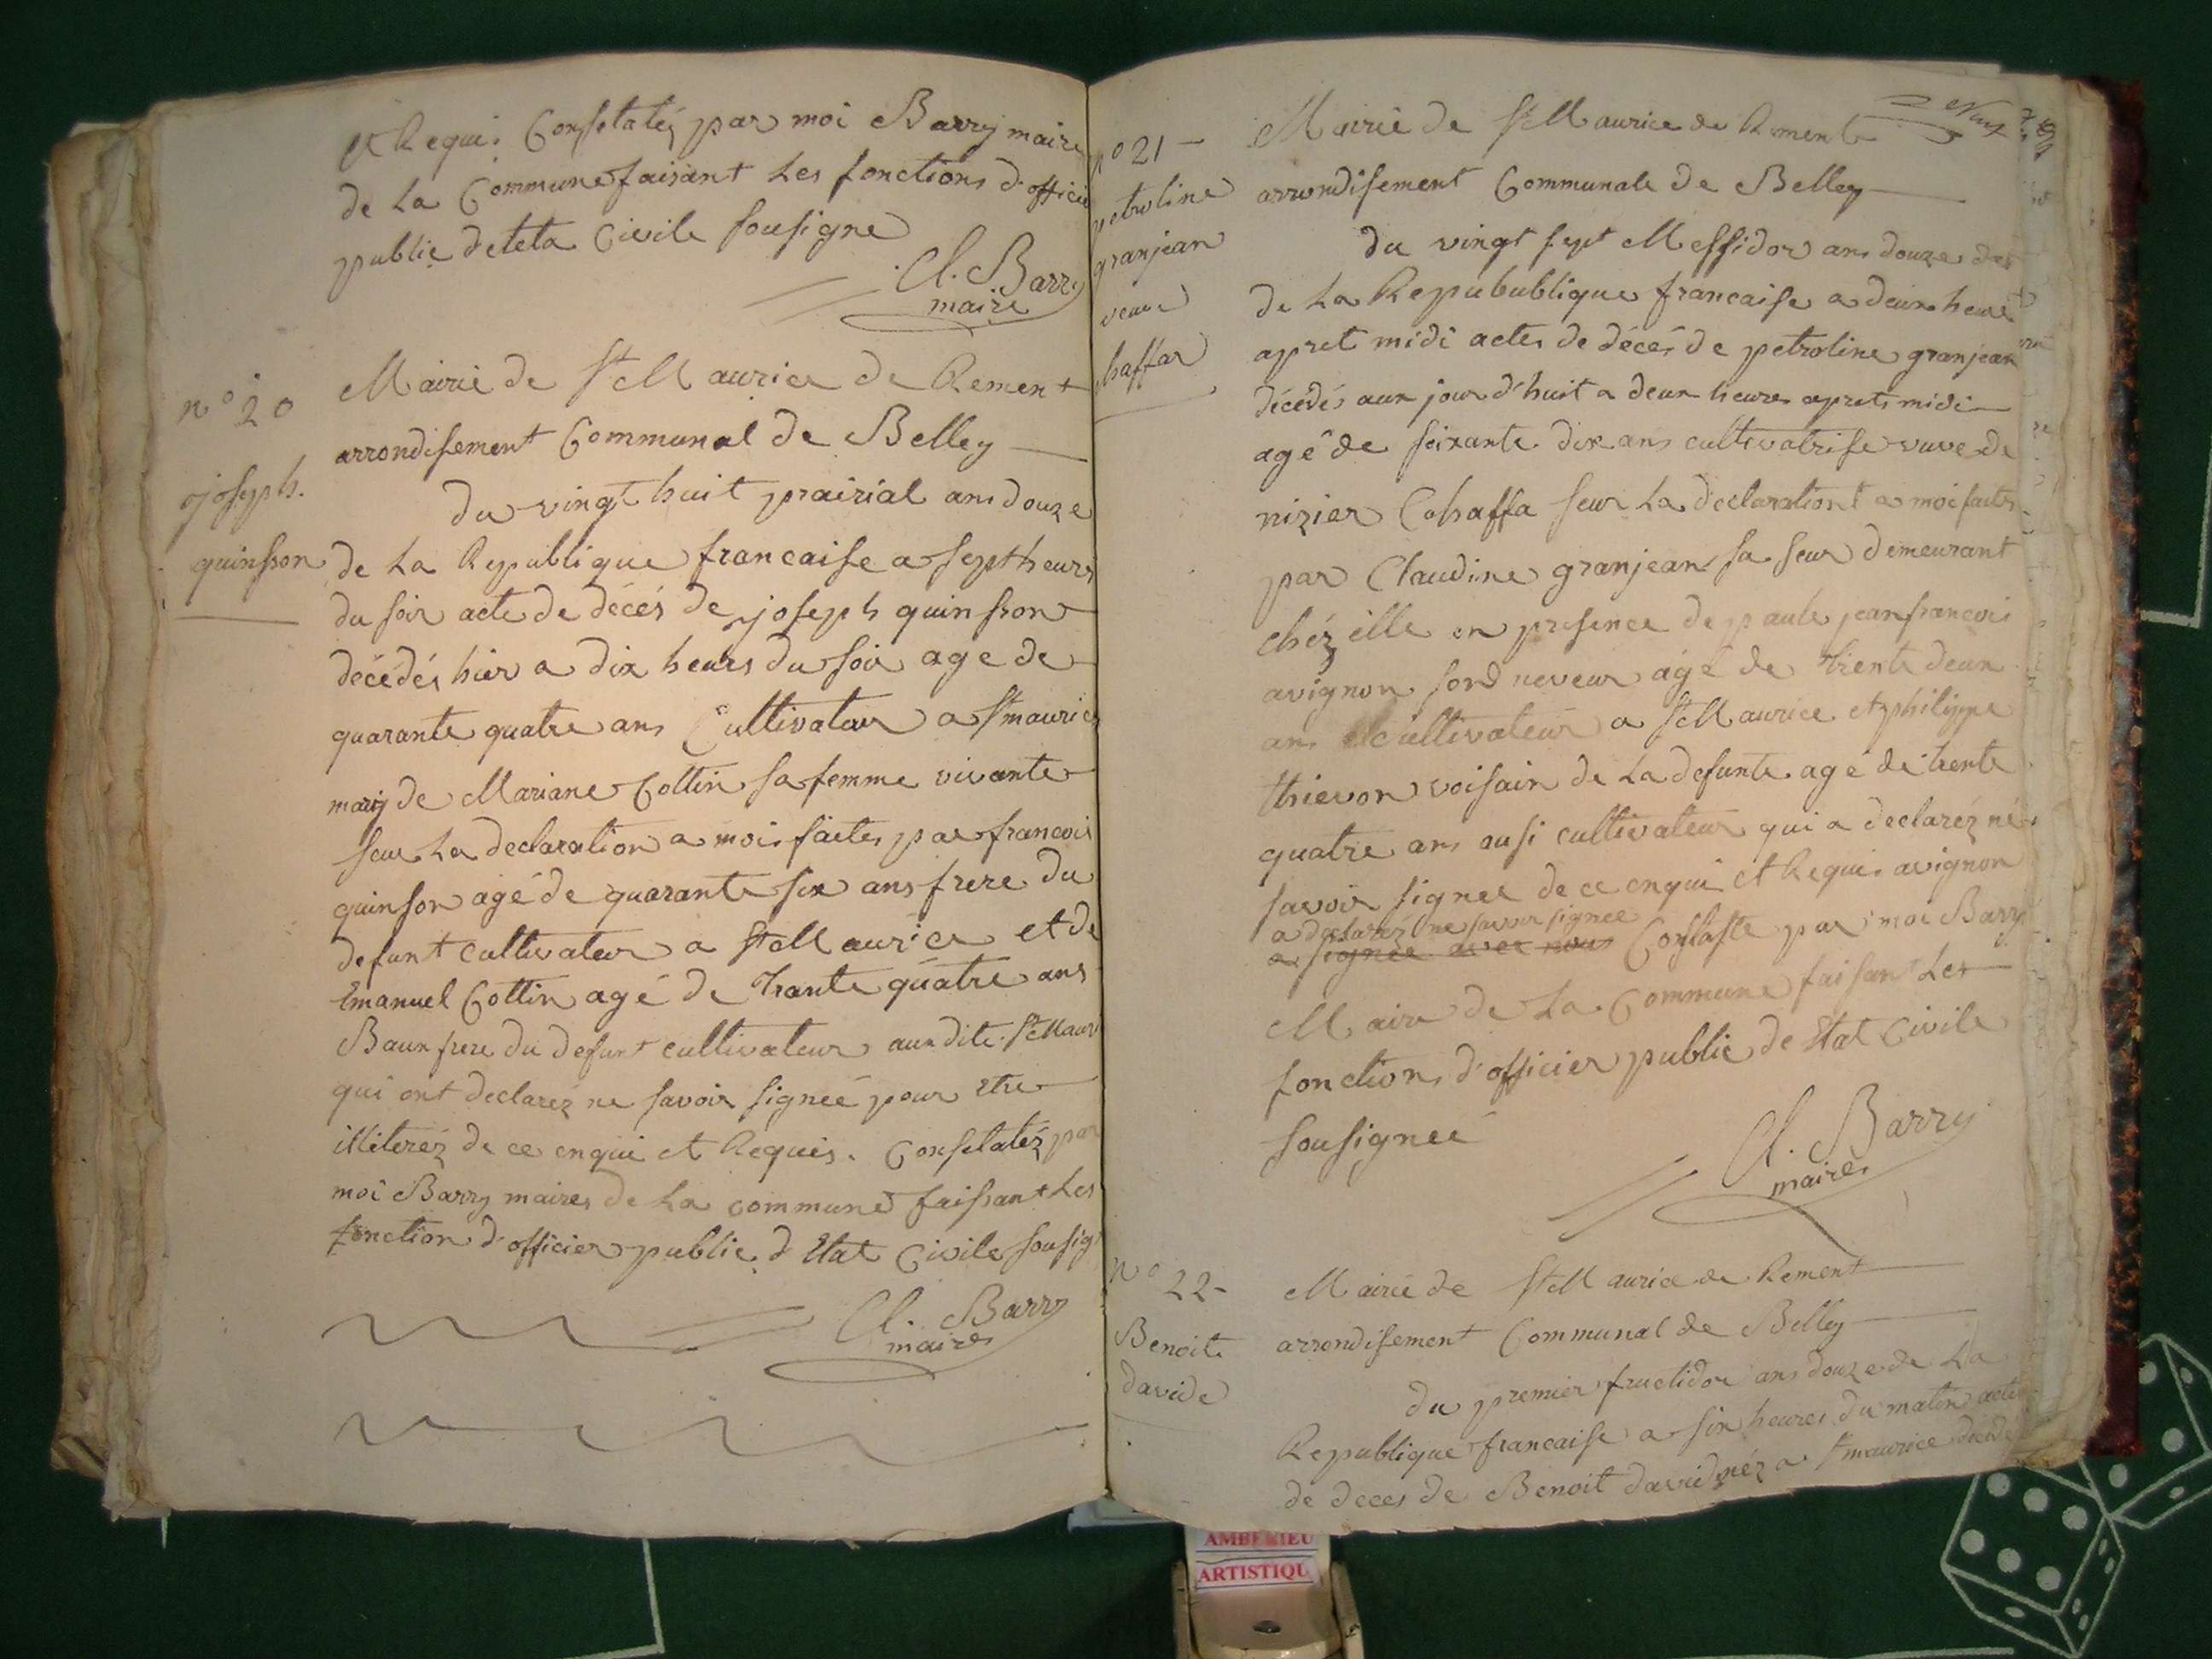 et Requi. Constatéz par moi Barry maire
de La Commune faisant Les fonctions d'officie
public deteta Civile sousigne
Cl. Barry
maire
n° 20
joseph.
quinsson
Mairie de St Maurice de Rement
arrondisement Communal de Belley
du vingt huit prairial ans douze
de La Republique francaise a sept heures
du soir acte de décés de joseph quinsson
décédés hier a dix heurs du soir age de
quarante quatre ans Cultivateur a St maurice
marij de Mariane Cottin sa femme vivante
seur La declaration a moi faites par francois
quinson agé de quarante six ans frere du
defunt cultivateur a St Maurice et de
Emanuel Cottin agé de trante quatre ans
Baun frere du defunt cultivateur aux dite St Maur
qui ont declaréz ne savoir signeé pour etre
illiteréz de ce enqui et Requis. Constatéz par
moi Barry maires de La commune faissant Les
fonction d'officier public d'Etat Civile sousig
Cl. Barry
maires
n° 21
petroline
granjean
veuve
haffar
Mairie de St Maurice de Rement
arrondisement Communale de Belley
du vingt sept Messidor ans douze
de La Repubublique francaise a deux heure
apret midi actes de décés de petroline granjean
décédés aux jour d'huit a deux heures aprets midi
agé de soixante dix ans cultivatrise vuve de
nizier Cohaffa seur La declarationt a moi faites
par Claudine granjean sa seur demeurant
chéz elle en presence de paule jean francois
avignon sond neveux agé de trente deux
ans cultivateur a St Maurice et philippe
thievon voisain de La defunte agé de trente
quatre ans ausi cultivateur qui a declaréz né
savoir signee de ce enqui et Requis avignon
a declaréz ne savoir signee
a signée avec nous Constaste par moi Barry
Maire de La Commune faisant Les
fonctions d'officier public de Etat Civile
sousigneé
Cl. Barry
maires
n° 22
Benoite
davide
Mairie de St Maurice de Rement
arrondisement Communal de Belley
du premier fructidor ans douze de La
Republique francaise a six heures du matin acte
de deces de Benoit david néz a St maurice décédé
AMBERIEU
ARTISTIQU